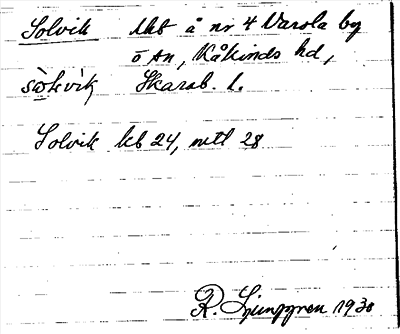 Solvik lht å nr 4 Varola by
ö An, Kåkinds hd,
Skarab. l.
Solvik kb 24, mtl 28
R. Ljunggren 1930